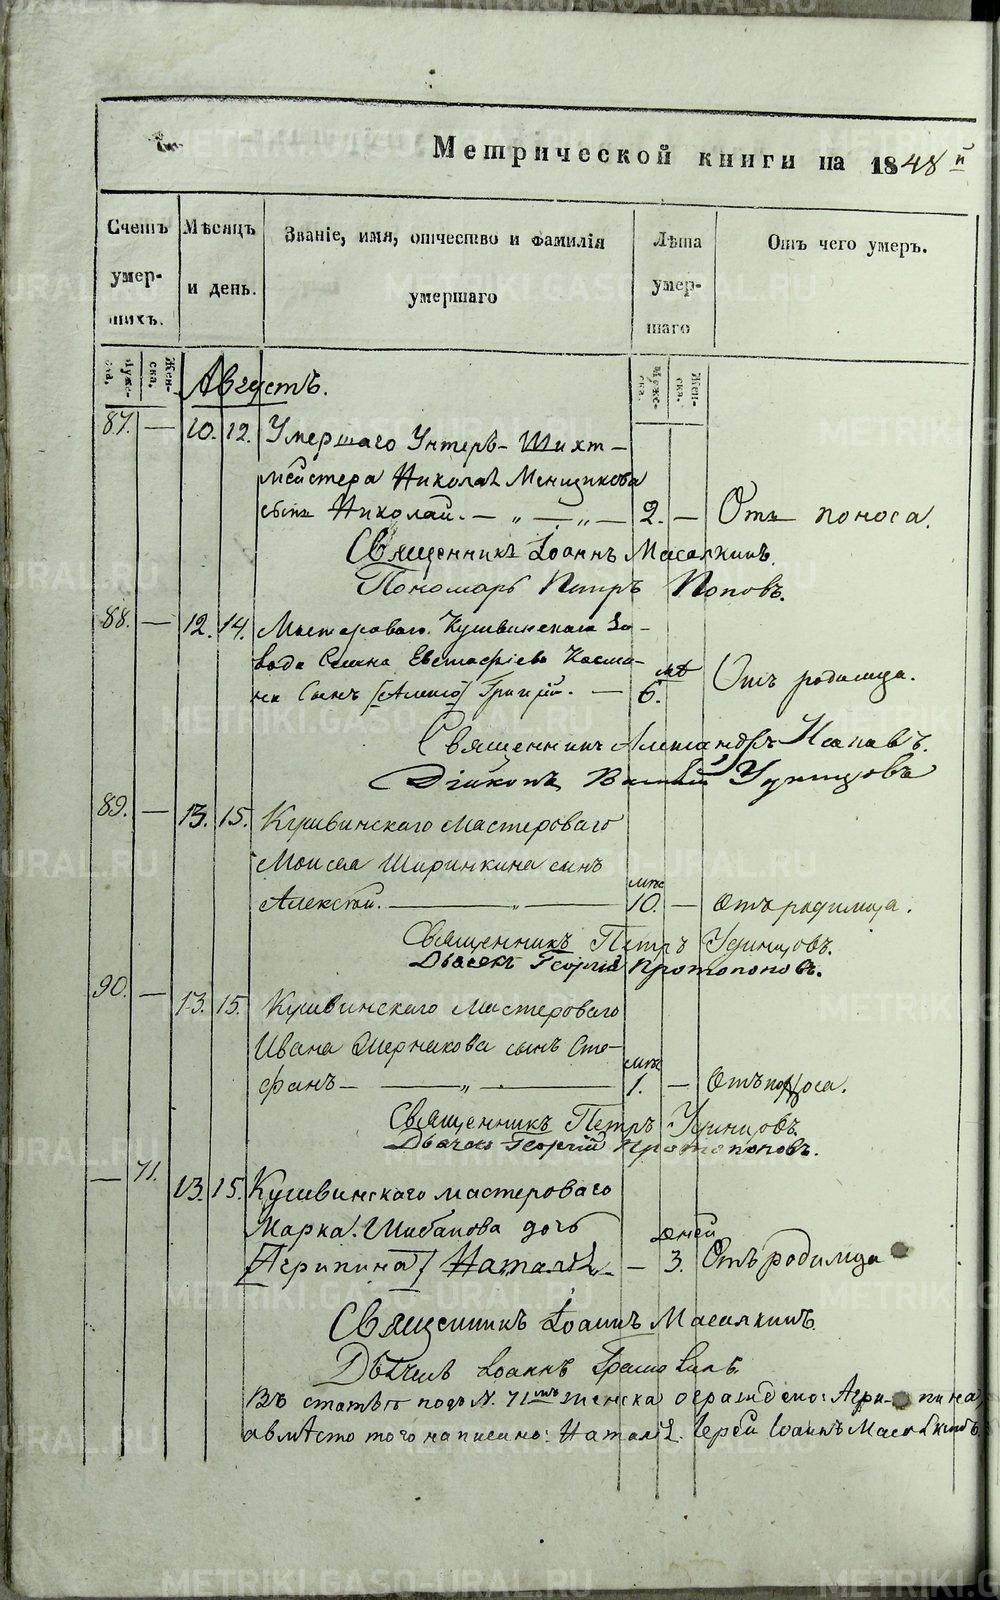 Метрической книги на 1848й
Счетъ умершихъ.
Мѣсяцъ и день.
Званіе, имя, отчество и фамилія умершаго
Лѣта умершаго
Отъ чего умеръ.
Мужеска. Женска.
Августъ.
Мужеска. Женска.
87. — 10. 12. Умершаго Унтеръ-Шихт-
мейстера Николая Менщикова
сынъ Николай. — „ — „ — 2. — Отъ поноса.
Священникъ Іоаннъ Масалкинъ.
Пономарь Петръ Поповъ.
88. — 12. 14. Мастероваго Кушвинскаго За-
вода Семена Евстафіева
сынъ Григорій. — мѣ 6. Отъ родимца.
Священникъ Александръ
Діаконъ Удинцовъ
89. — 13. 15. Кушвинскаго мастероваго
Моисея Ширинкина сынъ
Алексѣй. — „ — мѣс 10. — Отъ родимца.
Священникъ Петръ Удинцовъ.
Дьячекъ Георгій Протопоповъ.
90. — 13. 15. Кушвинскаго мастероваго
Ивана сынъ Сте-
фанъ — „ — мѣс 1. — Отъ поноса.
Священникъ Петръ Удинцовъ.
Дьячекъ Георгій Протопоповъ.
— 71. 13. 15. Кушвинскаго мастероваго
Марка Шибанова дочь
[Агрипина] Наталія — дней 3. Отъ родимца
Священникъ Іоаннъ Масалкинъ.
Дьячекъ Іоаннъ
Въ статьѣ подъ N. 71мъ женска ограждено: Агрипина,
а вмѣсто того написано: Наталія. Іерей Іоаннъ Масалкинъ.
METRIKI.GASO-URAL.RU